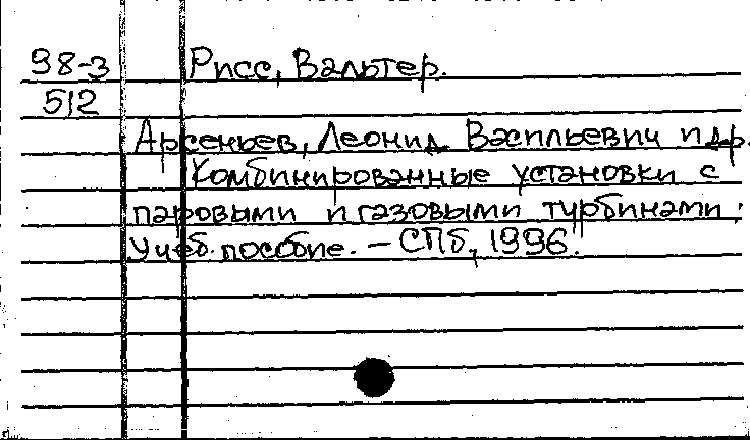 98-3 Рисс, Вальтер.
512
Арсеньев, Леонид Васильевич и др.
Комбинированные установки с
паровыми и газовыми турбинами:
Учеб. пособие. - СПб, 1996.